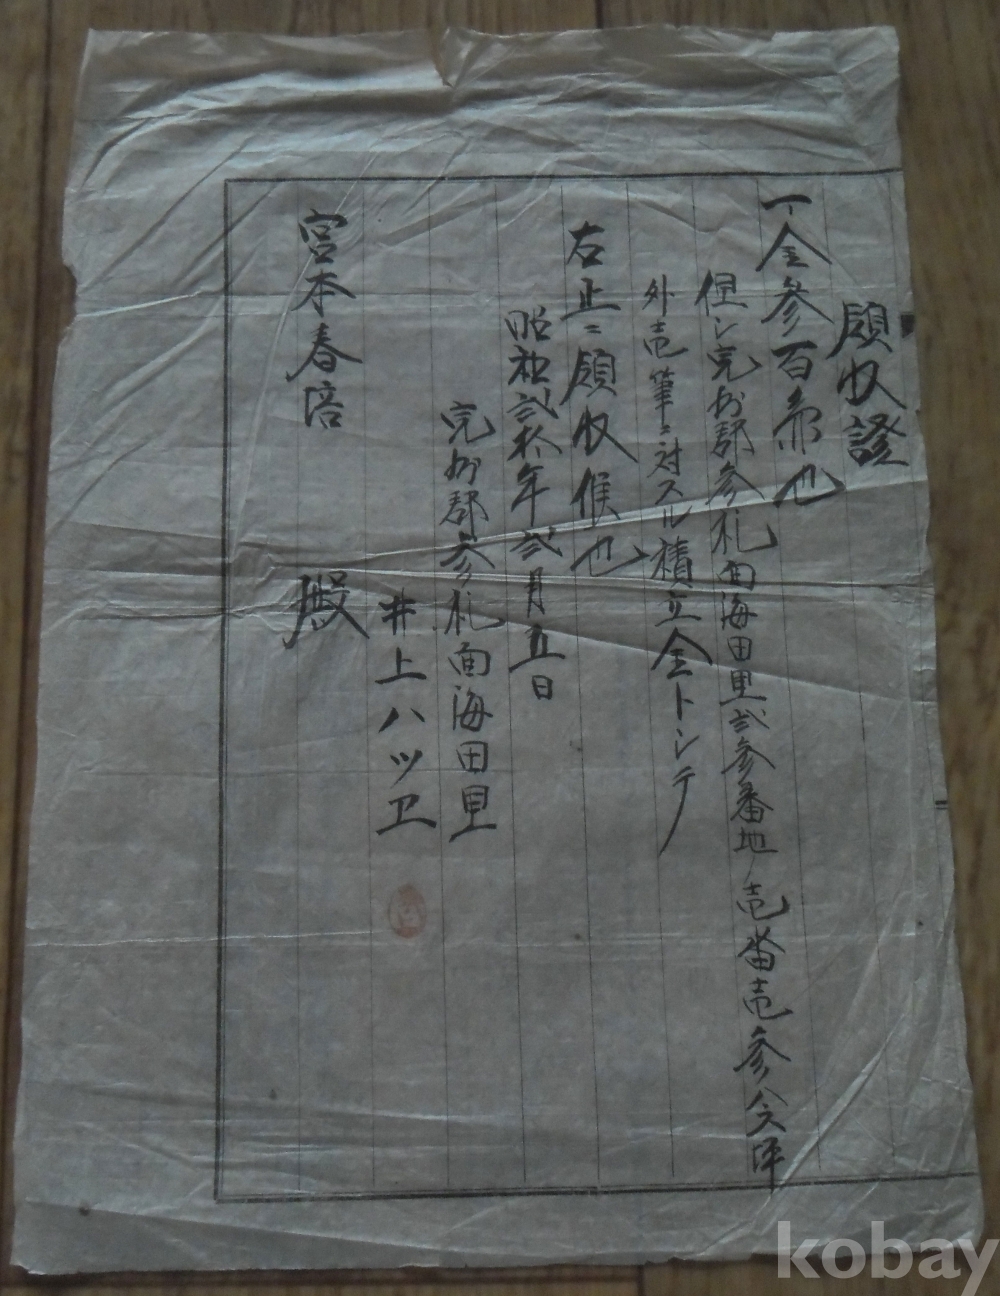 領收證
一金參百帋也
但シ完州郡参礼面海田里弐参番地ノ壱畓壱参六坪
外壱筆ニ対スル積立金トシテ
右正ニ領收候也
昭和弐拾年弐月五日
完州郡参礼面海田里
井上ハツヱ
宮本春培 殿
kobay